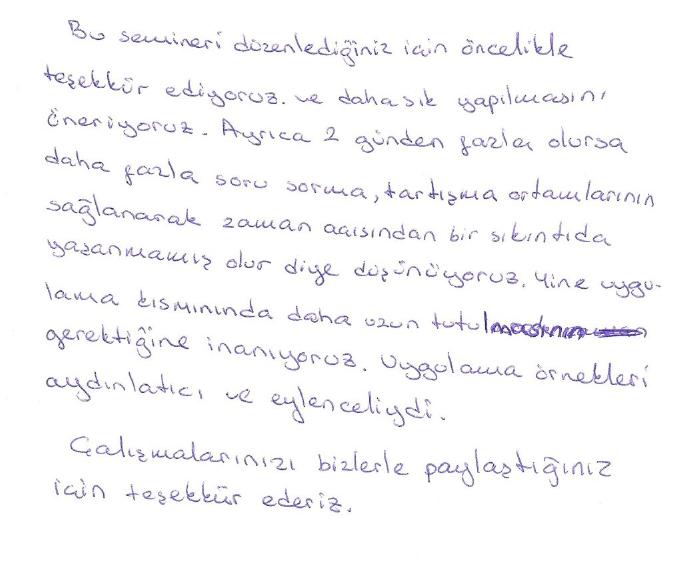 Bu semineri düzenlediğiniz için öncelikle
teşekkür ediyoruz. ve daha sık yapılmasını
öneriyoruz. Ayrıca 2 günden fazla olursa
daha fazla soru sorma, tartışma ortamlarının
sağlanarak zaman açısından bir sıkıntıda
yaşanmamış olur diye düşünüyoruz. Yine uygu-
lama kısmınında daha uzun tutulmasının
gerektiğine inanıyoruz. Uygulama örnekleri
aydınlatıcı ve eylenceliydi.
Çalışmalarınızı bizlerle paylaştığınız
için teşekkür ederiz.